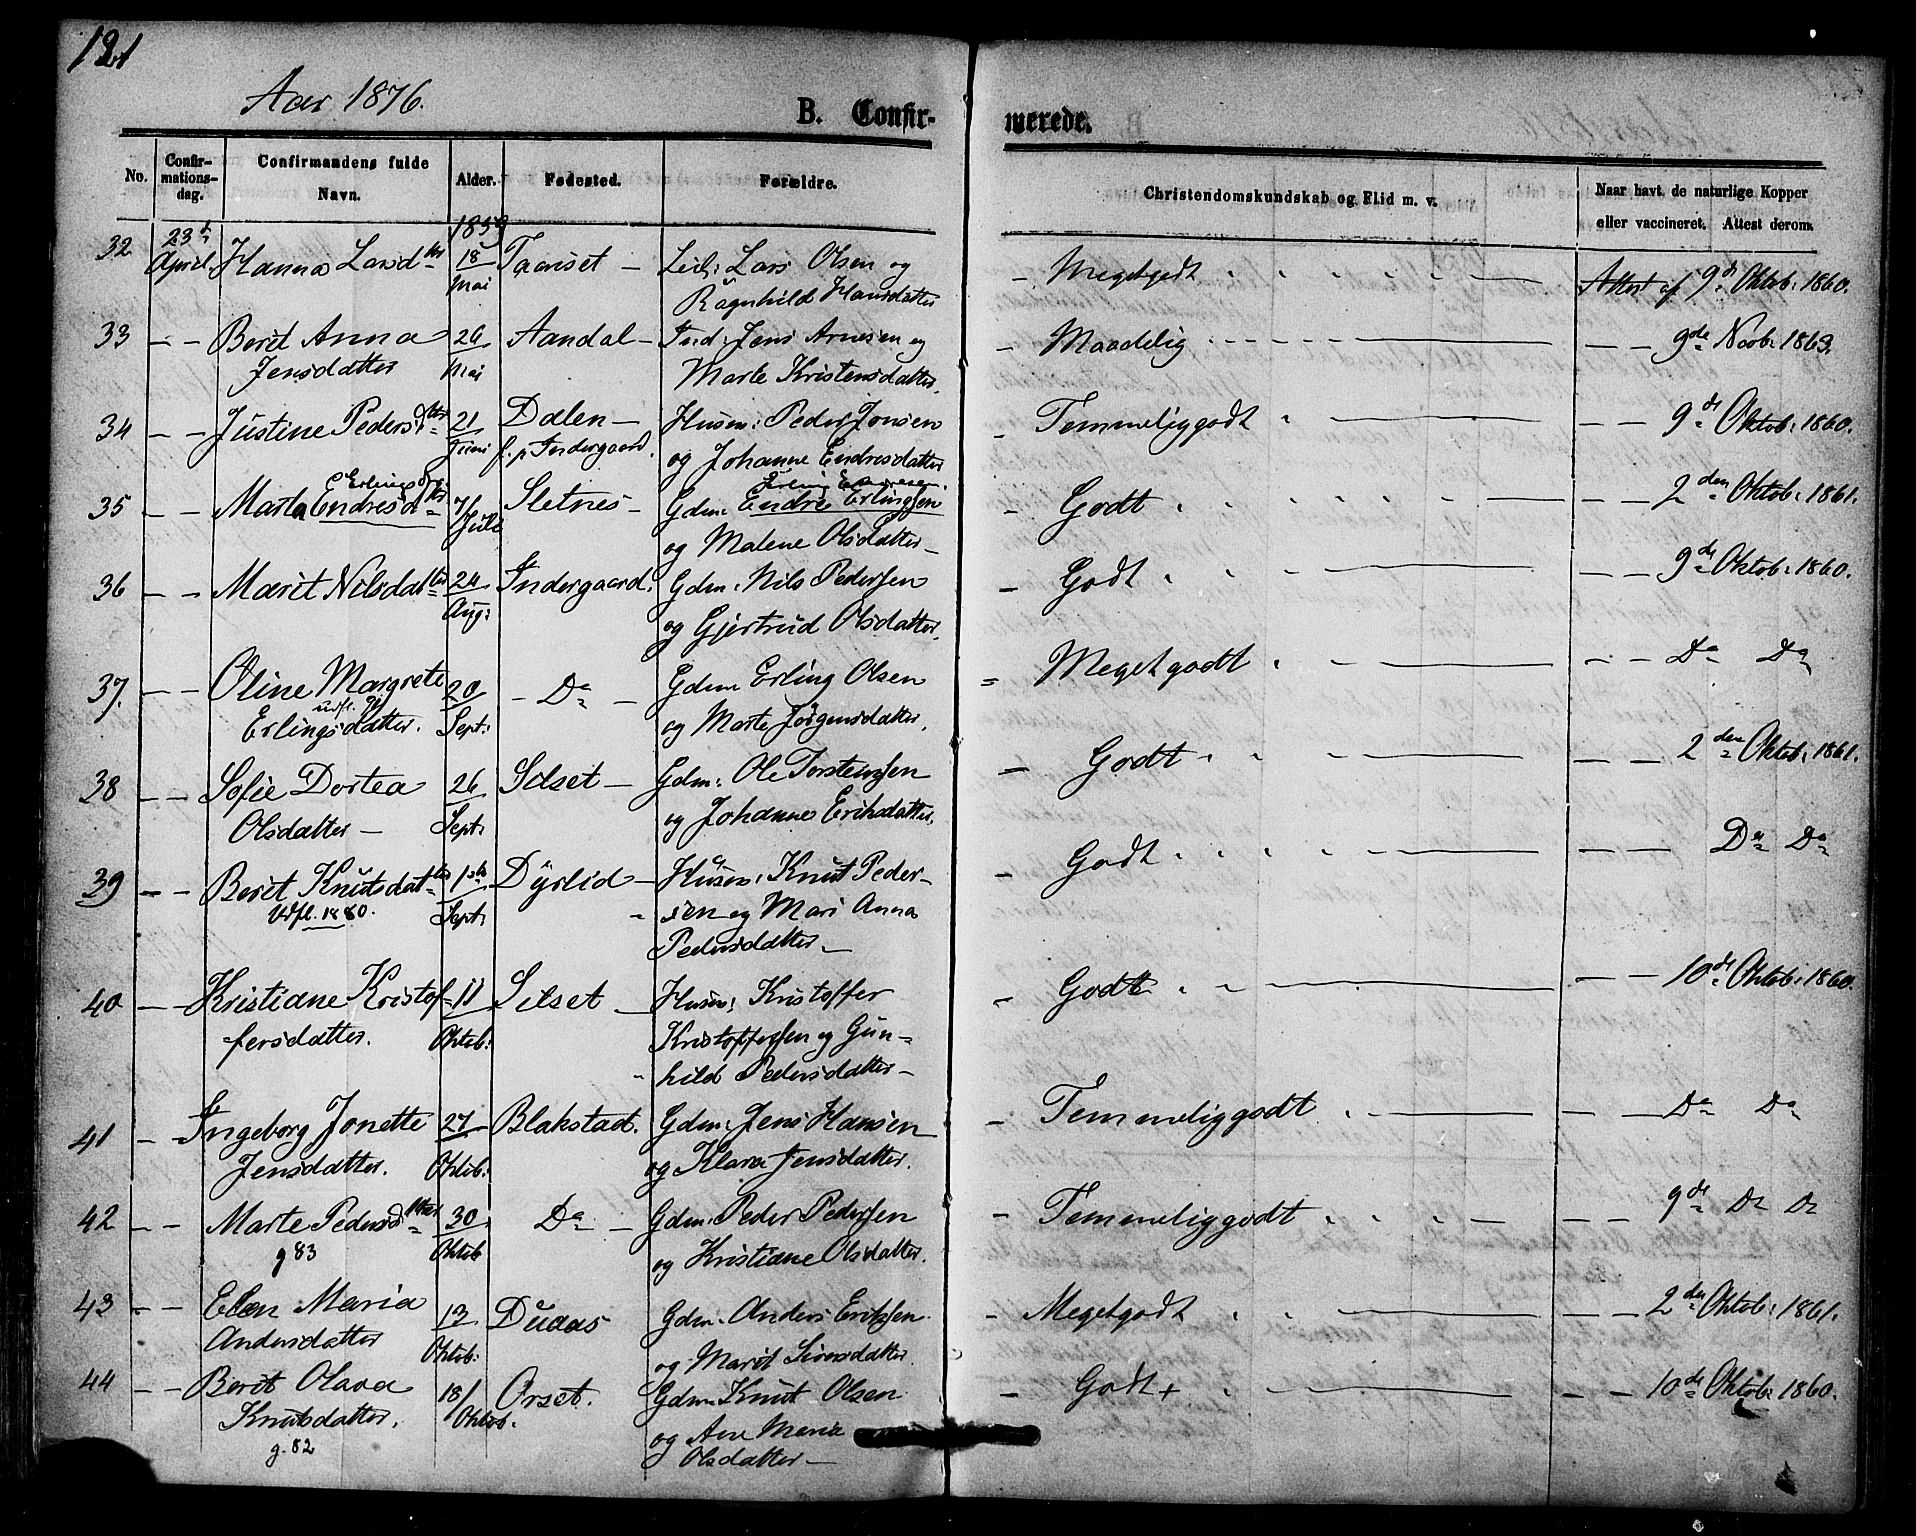 121
Aar 1876.
B. Confir- merede.
No. Confir-mations-dag. Confirmandens fulde Navn. Alder. Fødested. Forældre. Christendomskundskab og Flid m. v. Naar havt. de naturlige Kopper eller vaccineret. Attest derom.
1859
32 23d April. Hanna Larsdtr 18 Mai Taanset – Lars Olsen og – Megetgodt Attest af 9de Oktob: 1860.
Ragnhild Hansdatter
33 – – Berit Anna 26 Mai Aandal – Ind: Jens Arnesen og – Maadelig – – 9de Novb: 1863.
Jensdatter Marte Kristensdatter.
34 – – Justine Pedersdtr 21 Juni Dalen – Husm: Peder Jonsen – Temmeliggodt – – 9de Oktob: 1860.
f. p. Indergaard. og Johanne Endresdatter
Erlingsdtr Erling Endresen
35 – – Marta Endresdtr 7/ Juli Sletnes – Gdm: Endre Erlingsen – Godt – – 2den Oktob: 1861.
og Malene Olsdatter –
36 – – Marit Nilsdatter 24 Aug: Indergaard. Gdm: Nils Pedersen – Godt – – 9de Oktob: 1860.
og Gjertrud Olsdatter.
37. – – Oline Margrete 20 Sept: – Do – Gdm Erling Olsen = Megetgodt – – Do Do
udfl.
Erlingsdatter. og Marte Jørgensdatter.
38 – – Sofie Dortea 26 Sept: Silset – Gdm: Ole Torstensen – Godt – – 2den Oktob: 1861.
Olsdatter – og Johanne Eriksdatter.
39 – – Berit Knutsdatter Sept: Dyrlid – Husm: Knut Peder- – Godt – – Do Do
Udfl. 1880. sen og Mari Anna
Pedersdatter –
40 – – Kristiane Kristof- 11 Oktob: Silset – Husm: Kristoffer – Godt – – 10de Oktob: 1860.
fersdatter. Kristoffersen og Gun-
hild Pedersdatter –
41 – Ingeborg Jonette 27 Oktob: Blakstad. Gdm: Jens Hansen – Temmeliggodt – – Do Do
Jensdatter. og Klara Jensdatter.
42 – – Marte Pedersdatter 30 Oktob Do – Gdm: Peder Pedersen – Temmeliggodt – – 9de Do Do
g 83 og Kristiane Olsdatter.
43 – – Elen Maria 13 Oktob: Duaas Gdm: Anders Eriksen – Megetgodt – – 2den Oktob: 1861.
Andersdatter og Marit Siversdatter.
44 – – Berit Olava 18/ Oktob. Orset. Gdm: Knut Olsen – Godt + – – 10de Oktob: 1860.
Knutsdatter. og Ane Maria
g. 82 Olsdatter –